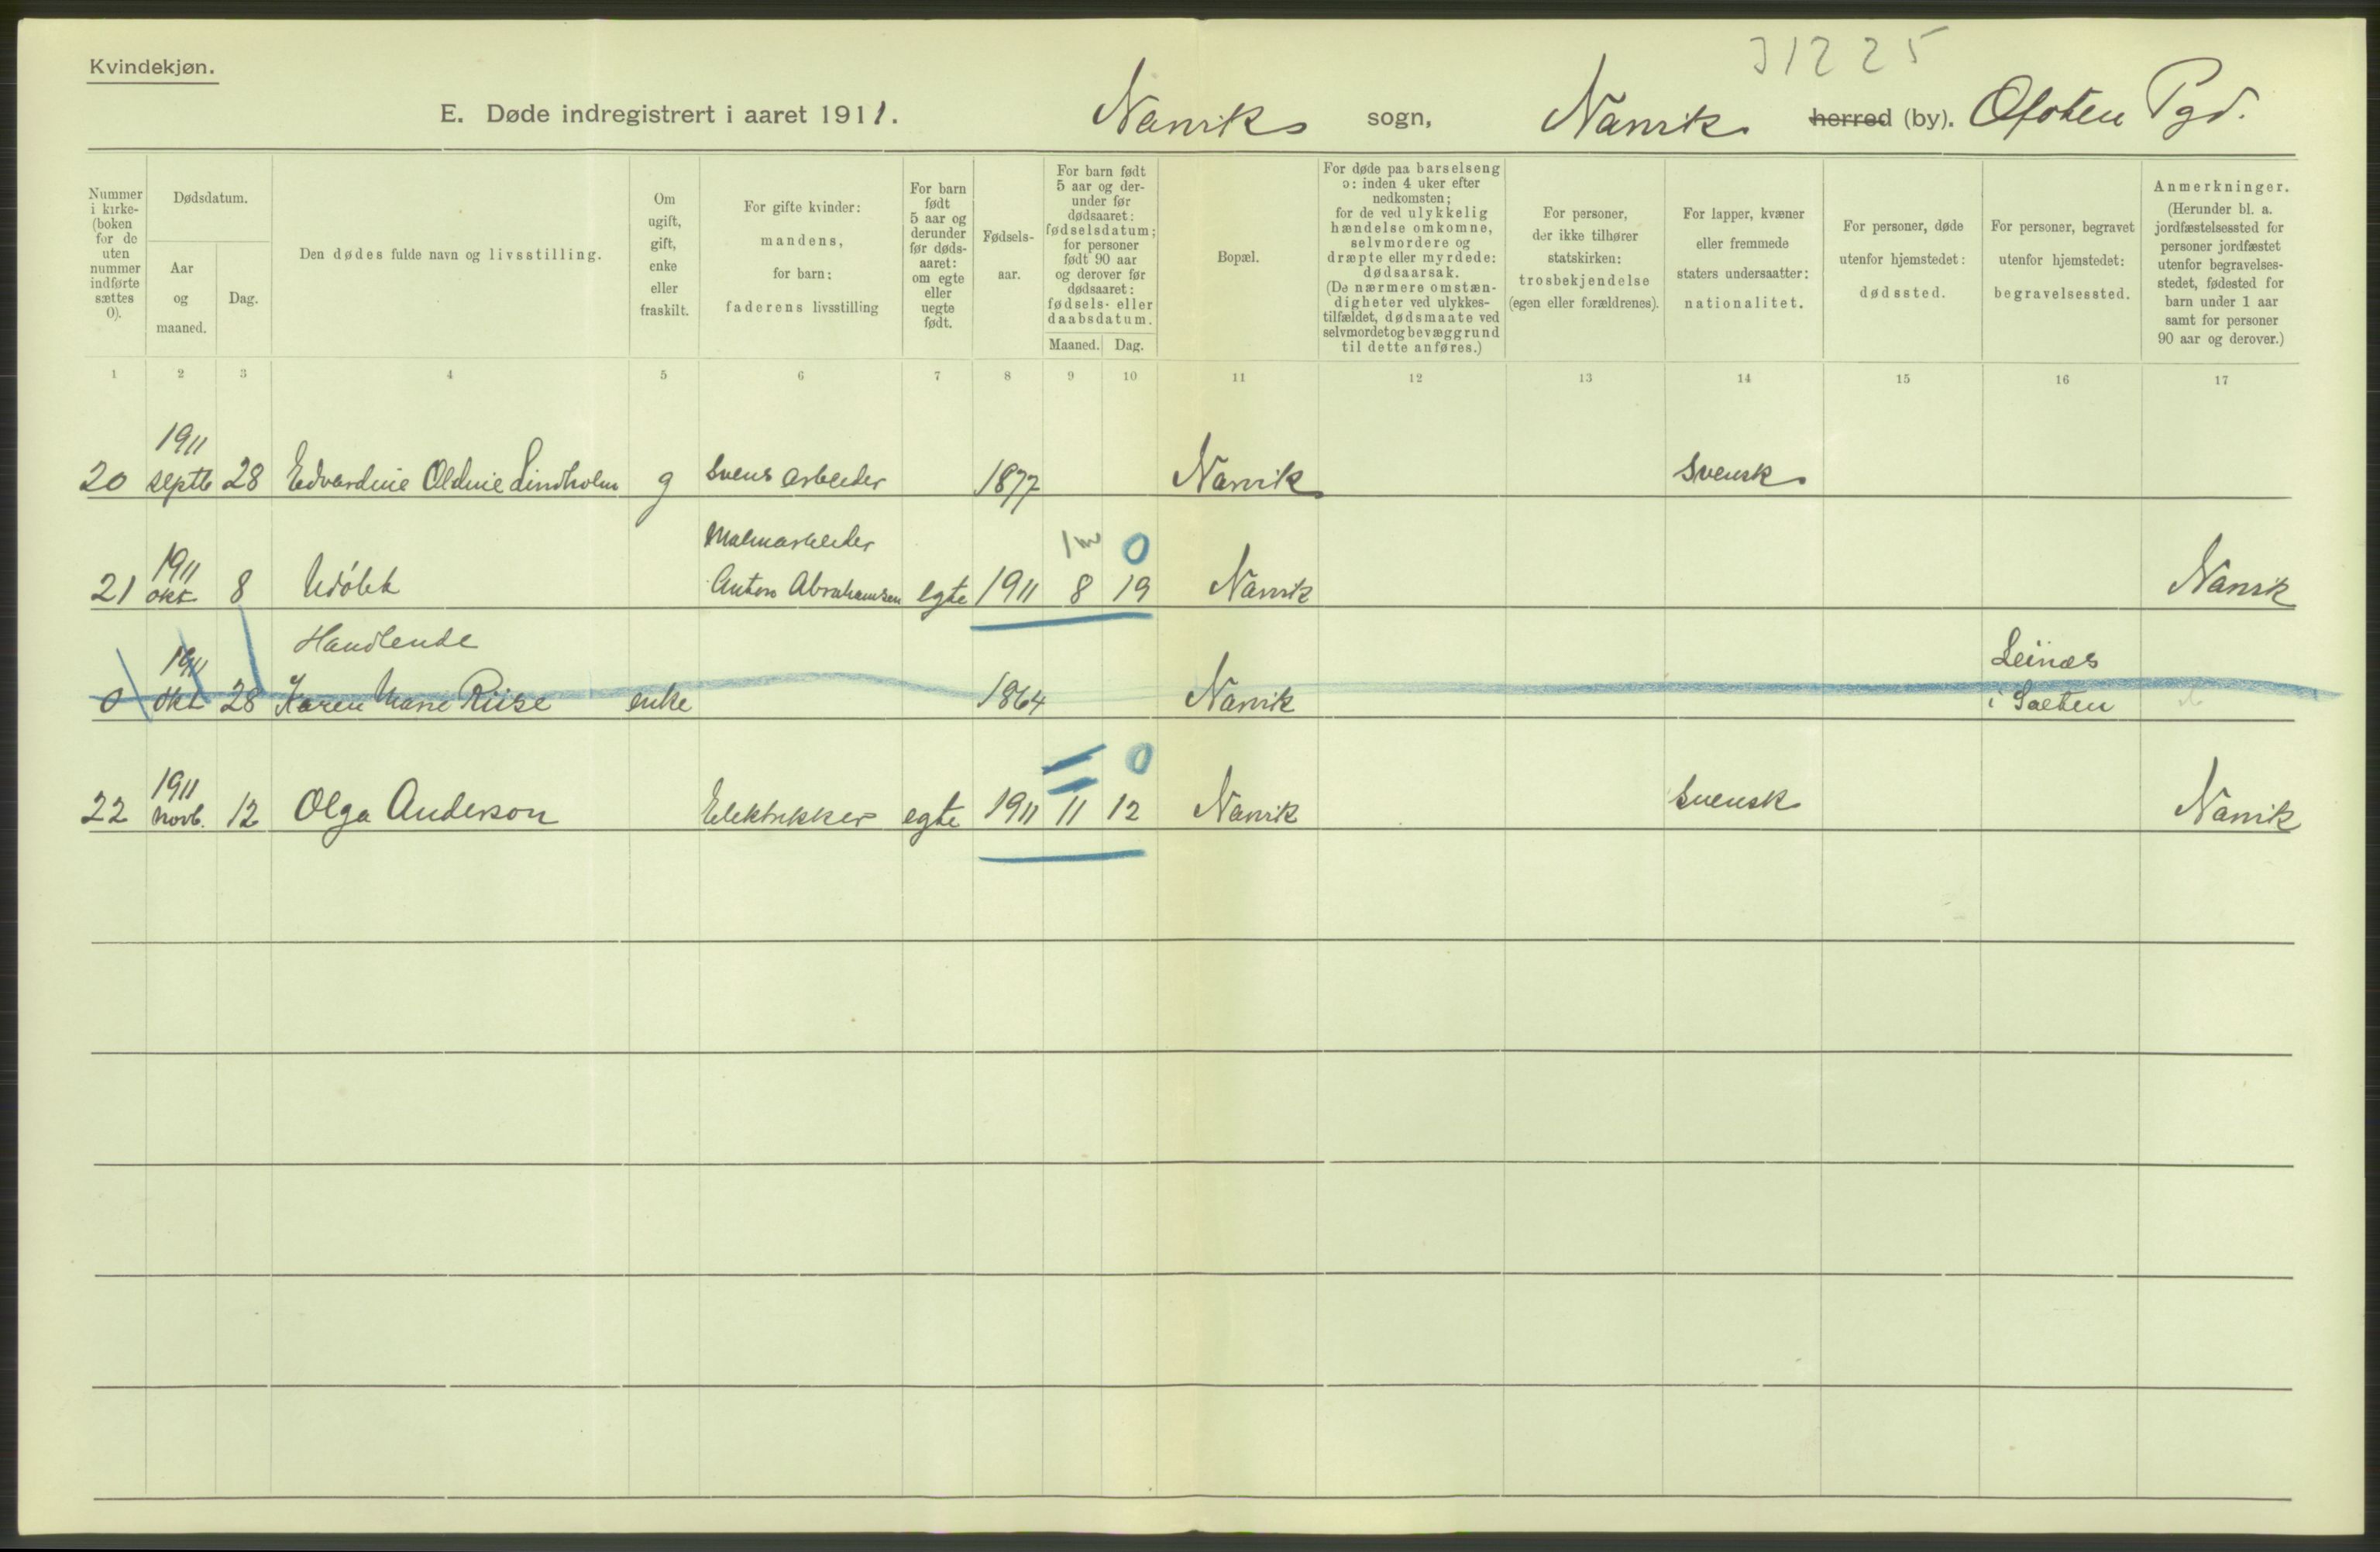 31225
Kvindekjøn.
E. Døde indregistrert i aaret 1911. Narvik sogn, Narvik herred (by). Ofoten Pgd.
Nummer i kirke- (boken for de uten nummer indførte sættes 0).
Dødsdatum.
Aar og maaned.
Dag.
Den dødes fulde navn og livsstilling.
Om ugift, gift, enke eller fraskilt.
For gifte kvinder: mandens, for barn: faderens livsstilling
For barn født 5 aar og derunder før døds- aaret: om egte eller uegte født.
Fødsels- aar.
For barn født 5 aar og der- under før dødsaaret: fødselsdatum; for personer født 90 aar og derover før dødsaaret: fødsels- eller daabsdatum.
Maaned. Dag.
Bopæl.
For døde paa barselseng ɔ: inden 4 uker efter nedkomsten; for de ved ulykkelig hændelse omkomne, selvmordere og dræpte eller myrdede: dødsaarsak. (De nærmere omstæn- digheter ved ulykkes- tilfældet, dødsmaate ved selvmord et og bevæggrund til dette anføres.)
For personer, der ikke tilhører statskirken: trosbekjendelse (egen eller forældrenes).
For lapper, kvæner eller fremmede staters undersaatter: nationalitet.
For personer, døde utenfor hjemstedet: dødssted.
For personer, begravet utenfor hjemstedet: begravelsessted.
Anmerkninger. (Herunder bl. a. jordfæstelsessted for personer jordfæstet utenfor begravelses- stedet, fødested for barn under 1 aar samt for personer 90 aar og derover.)
1 2 3 4 5 6 7 8 9 10 11 12 13 14 15 16 17
1911
20 septb 28 Edvardine Oldine Lindholm g Svens arbeider 1877 Narvik Svensk
Malmarbeider
1 m 0
1911
21 okt 8 Udøbt Anton Abrahamsen egte 1911 8 19 Narvik Narvik
Handlende
1911 Leines
0 okt 28 Karen Marie Riise enke 1864 Narvik i Salten
0
1911
22 novb. 12 Olga Anderson Elektrikker egte 1911 11 12 Narvik Svensk Narvik